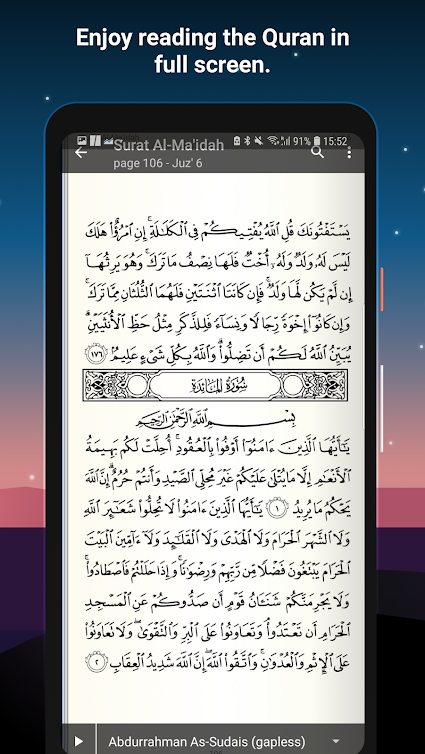 Enjoy reading the Quran in
full screen.
91% 15:52
Surat Al-Ma'idah
page 106 - Juz' 6
يَسْتَفْتُونَكَ قُلِ ٱللَّهُ يُفْتِيكُمْ فِى ٱلْكَلَـٰلَةِ ۚ إِنِ ٱمْرُؤٌا۟ هَلَكَ
لَيْسَ لَهُۥ وَلَدٌ وَلَهُۥٓ أُخْتٌ فَلَهَا نِصْفُ مَا تَرَكَ ۚ وَهُوَ يَرِثُهَآ
إِن لَّمْ يَكُن لَّهَا وَلَدٌ ۚ فَإِن كَانَتَا ٱثْنَتَيْنِ فَلَهُمَا ٱلثُّلُثَانِ مِمَّا تَرَكَ ۚ
وَإِن كَانُوٓا۟ إِخْوَةً رِّجَالًا وَنِسَآءً فَلِلذَّكَرِ مِثْلُ حَظِّ ٱلْأُنثَيَيْنِ ۗ
يُبَيِّنُ ٱللَّهُ لَكُمْ أَن تَضِلُّوا۟ ۗ وَٱللَّهُ بِكُلِّ شَىْءٍ عَلِيمٌۢ ١٧٦
سُورَةُ المَائِدَةِ
بِسْمِ ٱللَّهِ ٱلرَّحْمَـٰنِ ٱلرَّحِيمِ
يَـٰٓأَيُّهَا ٱلَّذِينَ ءَامَنُوٓا۟ أَوْفُوا۟ بِٱلْعُقُودِ ۚ أُحِلَّتْ لَكُم بَهِيمَةُ
ٱلْأَنْعَـٰمِ إِلَّا مَا يُتْلَىٰ عَلَيْكُمْ غَيْرَ مُحِلِّى ٱلصَّيْدِ وَأَنتُمْ حُرُمٌ ۗ إِنَّ ٱللَّهَ
يَحْكُمُ مَا يُرِيدُ ١ يَـٰٓأَيُّهَا ٱلَّذِينَ ءَامَنُوا۟ لَا تُحِلُّوا۟ شَعَـٰٓئِرَ ٱللَّهِ
وَلَا ٱلشَّهْرَ ٱلْحَرَامَ وَلَا ٱلْهَدْىَ وَلَا ٱلْقَلَـٰٓئِدَ وَلَآ ءَآمِّينَ ٱلْبَيْتَ
ٱلْحَرَامَ يَبْتَغُونَ فَضْلًا مِّن رَّبِّهِمْ وَرِضْوَٰنًا ۚ وَإِذَا حَلَلْتُمْ فَٱصْطَادُوا۟ ۚ
وَلَا يَجْرِمَنَّكُمْ شَنَـَٔانُ قَوْمٍ أَن صَدُّوكُمْ عَنِ ٱلْمَسْجِدِ
ٱلْحَرَامِ أَن تَعْتَدُوا۟ ۘ وَتَعَاوَنُوا۟ عَلَى ٱلْبِرِّ وَٱلتَّقْوَىٰ ۖ وَلَا تَعَاوَنُوا۟
عَلَى ٱلْإِثْمِ وَٱلْعُدْوَٰنِ ۚ وَٱتَّقُوا۟ ٱللَّهَ ۖ إِنَّ ٱللَّهَ شَدِيدُ ٱلْعِقَابِ ٢
Abdurrahman As-Sudais (gapless)